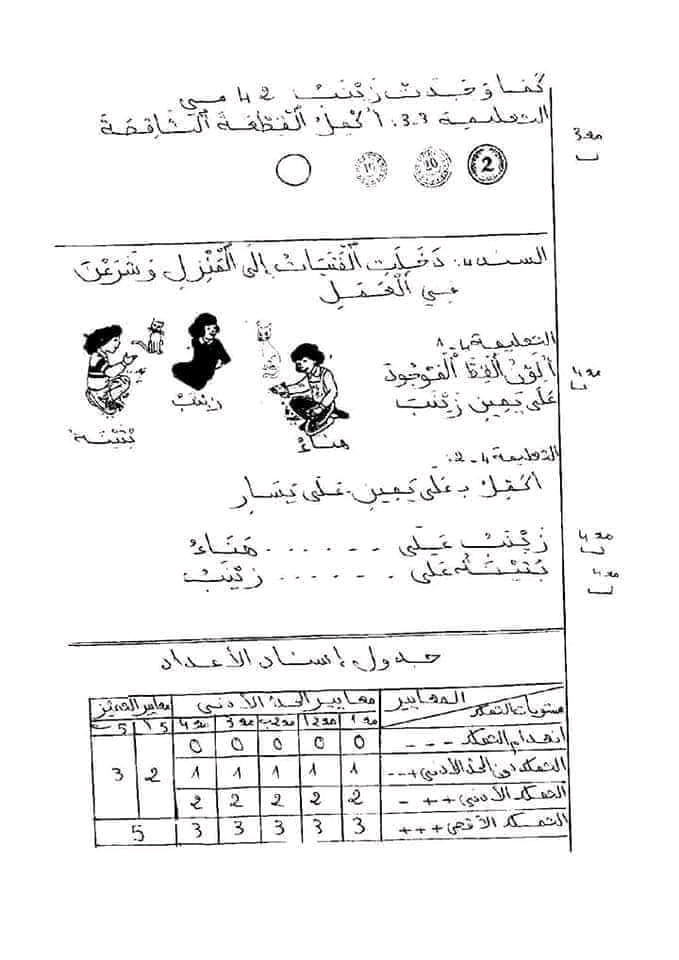 كَمَا وَجَدَتْ زَيْنَبُ 42 مي
التعليمية 3.3: أُكْمِلُ الْقِطْعَةَ النَّاقِصَةَ
مع3
ب
2
20
10
السند4: دَخَلَتِ الْفَتَيَاتُ إِلَى الْمَنْزِلِ وَشَرَعْنَ
فِي الْعَمَلِ
التعليمة 4-1
أُلَوِّنُ الْقِطَّ الْمَوْجُودَ
عَلَى يَمِينِ زَيْنَبَ
مع4
ب
زَيْنَبُ
بُثَيْنَةُ
هَنَاءُ
التعليمة 4-2:
أُكْمِلُ بـ عَلَى يَمِينِ - عَلَى يَسَارِ
زَيْنَبُ عَلَى ...... هَنَاءُ
مع4
ب
بُثَيْنَةُ عَلَى ...... زَيْنَبُ
مع4
ب
جدول إسناد الأعداد
المعايير
مستويات التملك
معايير الحدّ الأدنى
معايير التميّز
مع1 مع2أ مع2ب مع3 مع4 5أ 5ب
انعدام التملك - - - 0 0 0 0 0
التملك دون الحدّ الأدنى + - - 1 1 1 1 1 2 3
التملك الأدنى + + - 2 2 2 2 2
التملك الأقصى + + + 3 3 3 3 3 5